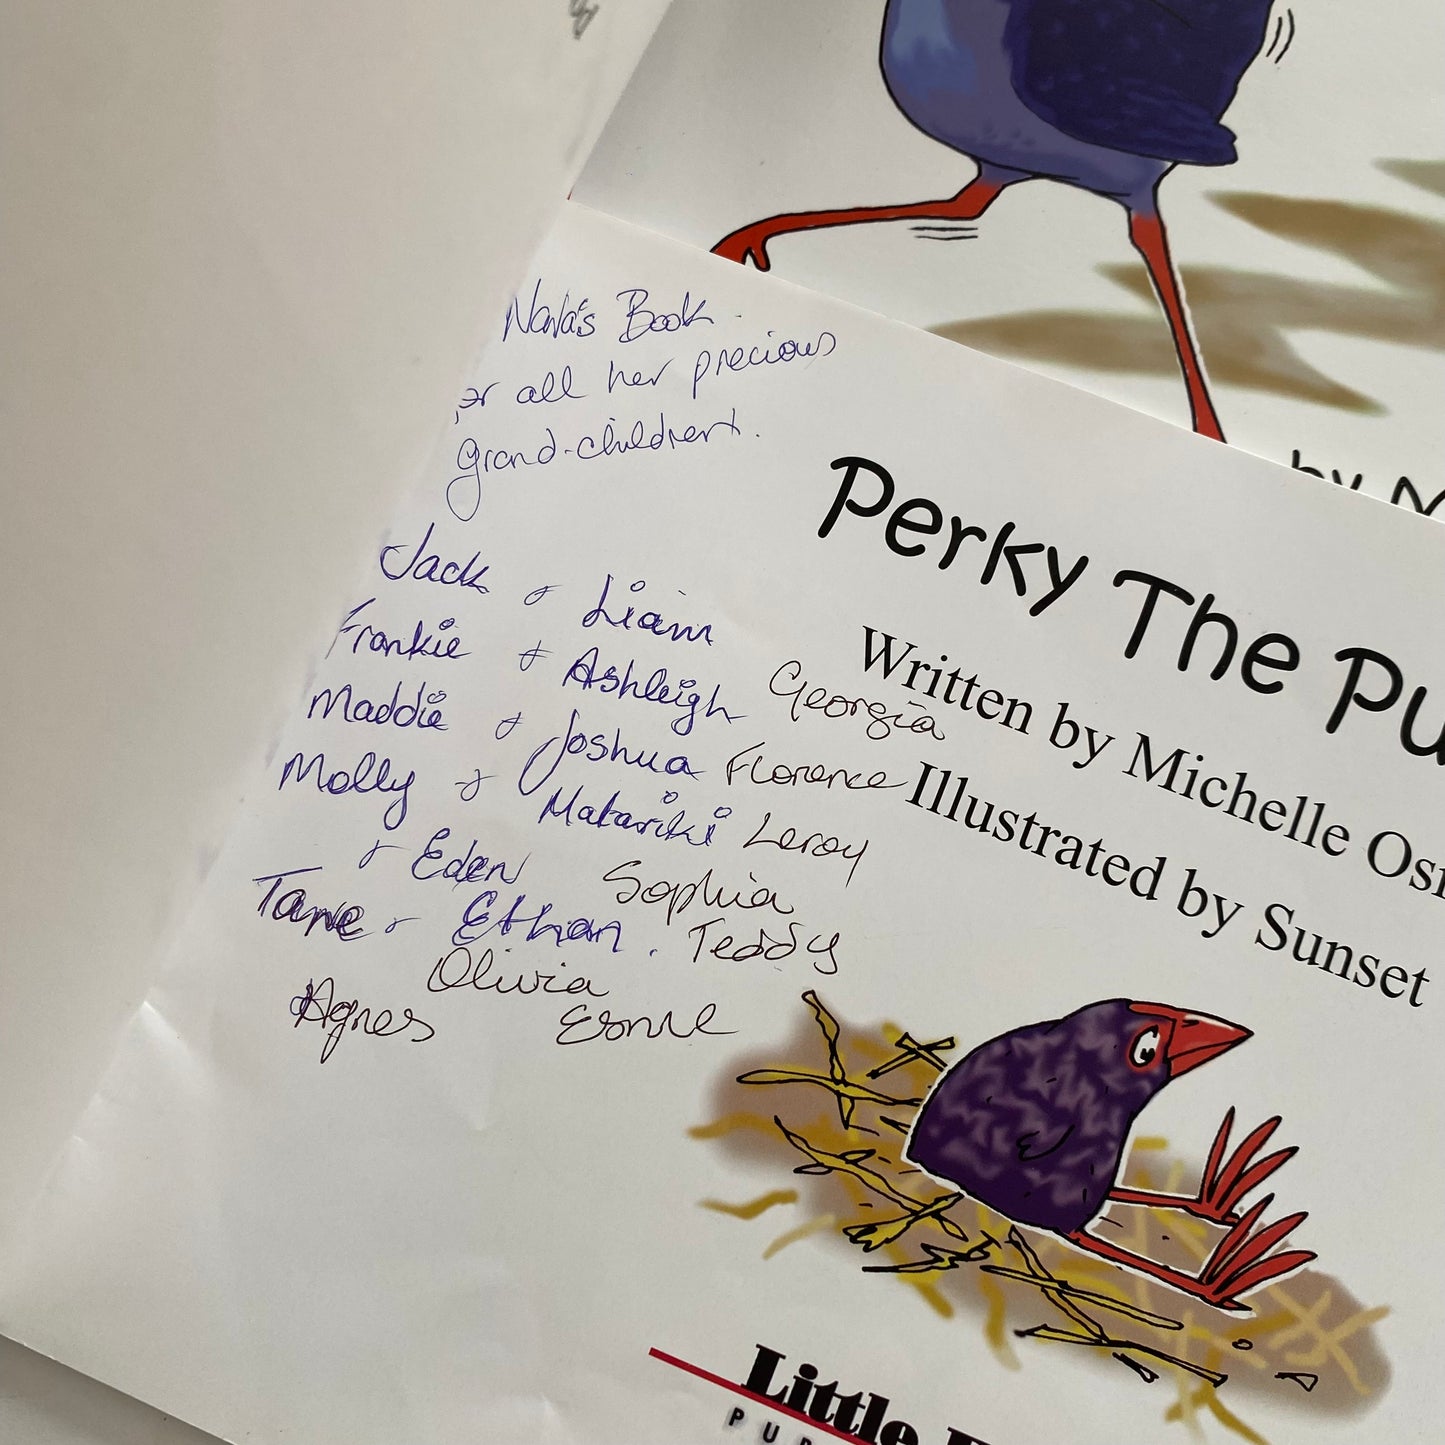 Nana's Book.
for all her precious
grand-children.
Jack & Liam
Frankie & Ashleigh Georgia
Maddie & Joshua Florence
Molly & Matariki Leroy
& Eden Sophia
Tane & Ethan. Teddy
Olivia
Agnes
by M
Perky The Pu
Written by Michelle Os
Illustrated by Sunset
Little
PU